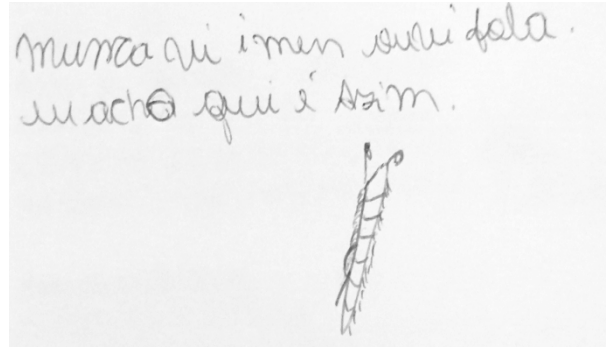 nunca vi i men ouvi fala.
eu acho qui é asim.